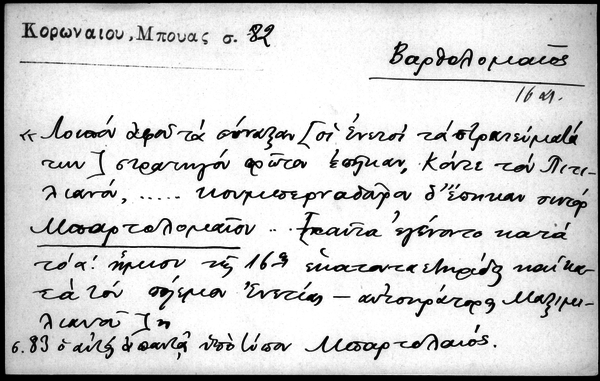 Κορωναιου, Μπουας σ. 82
Βαρθολομαῖος
16 αι.
« Λοιπόν ἀφοῦ τά σύναξαν [οἱ Ἐνετοί τά στρατεύματά
των] στρατηγόν πρῶτον ἐποῖκαν, Κόντε τόν Πιτι-
λιανό, ..... δ' ἔποικαν σινιόρ
Μπαρτολομαῖον .. [ταῦτα ἐγένοντο κατά
τό α! ἥμισυ τῆς 16ης ἑκατονταετηρίδος καί κα-
τά τόν πόλεμον Ἐνετίας – αὐτοκράτορος Μαξιμι-
λιανοῦ] »
σ. 83 ὁ αὐτός ἀπαντᾷ ὑπό τύπον Μπαρτολαιός.